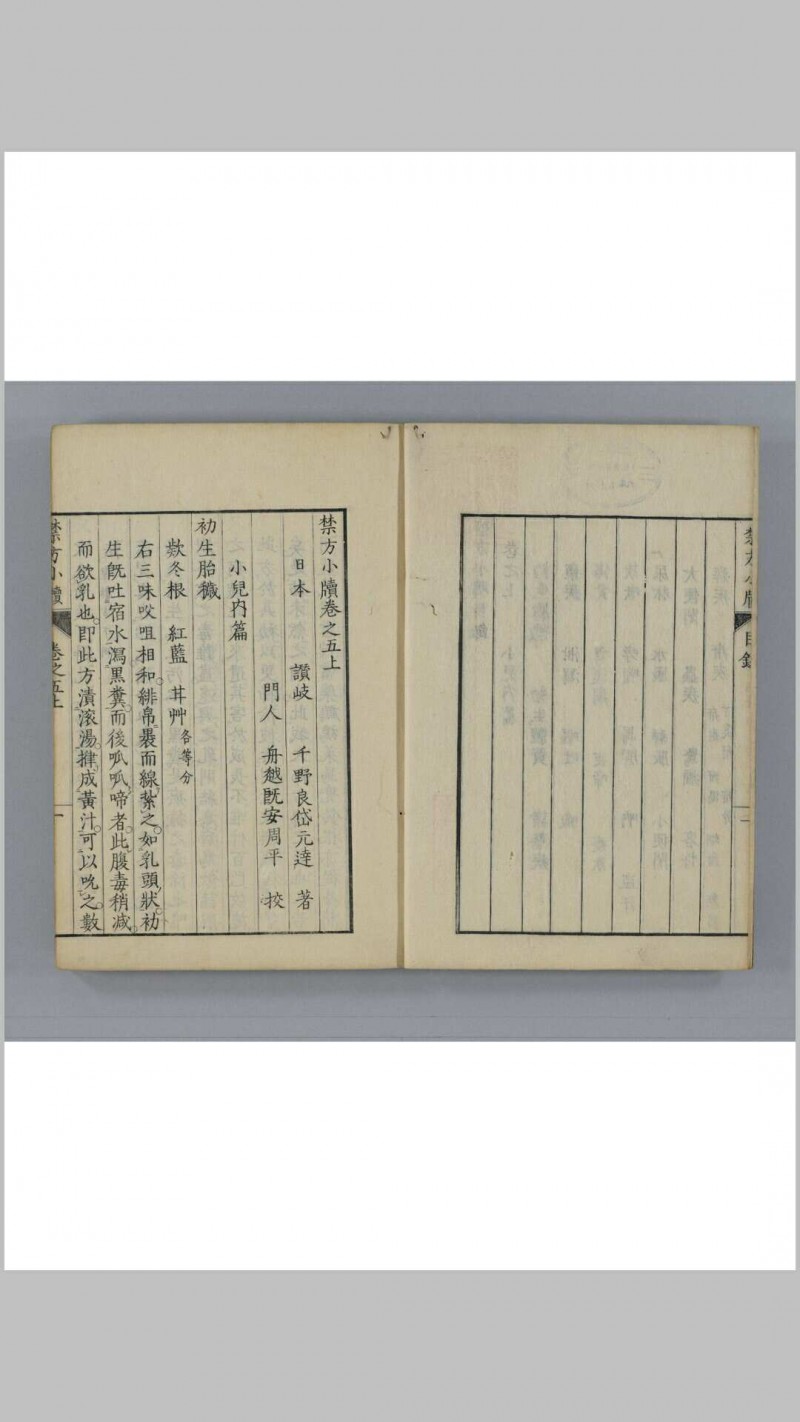 禁方小牘 目錄
禁方小牘卷之五上
日本 讚岐 千野良岱元達 著
門人 舟越既安周平 校
小兒内篇
初生胎穢
欵冬根 紅藍 甘艸各等分
右三味㕮咀相和。緋帛裹而線紮之。如乳頭狀。初
生旣吐宿水瀉黑糞。而後呱呱啼者。此腹毒稍減。
而欲乳也。即此方漬滾湯。㨋成黃汁。可以吮之數
禁方小牘 卷之五上 一